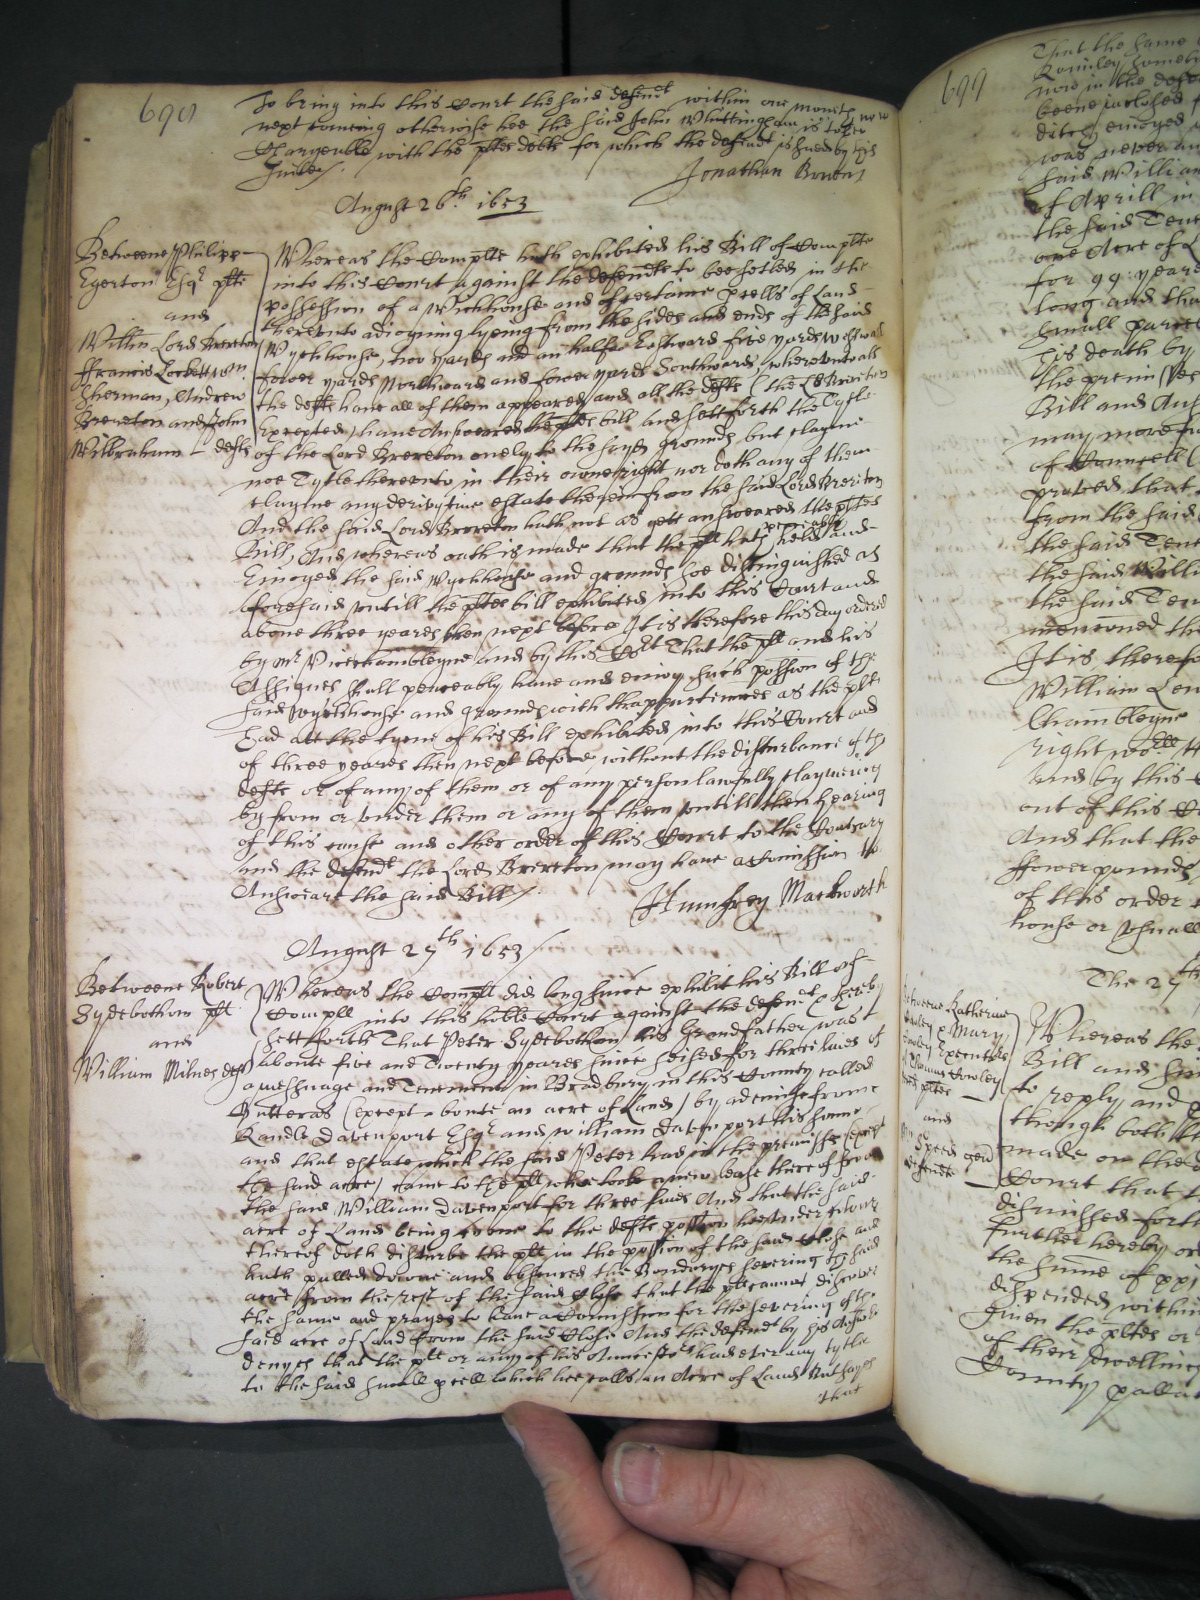 698
To bring into this Court the said defendt within one month now
next comeing otherwise hee the said John Whittingham is to bee
Chargeable with the pltes debte for which the defendt is sued by his
Jonathan Bruen
August 26th. 1653
Betweene Philippe
Egerton Esqr plte
and
Willm Lord Brereton
ffrancis Lockett Wm.
Sherman, Andrew
Brereton and John
Wilbraham defts
Whereas the Complte hath exhibited his Bill of Complte
into this Court against the defendts to bee setled in the
possession of a Wichhouse and of certaine pcells of Land
thereunto adioyning lyeing from the sides and ends of the said
Wychhouse, two yards and an halfe Eastward five yards Westward
fower yards Northward and fower yards Southward, whereunto all
the defts have all of them appeared and all the defts (the Ld Brereton
excepted) have Answeared the pltes bill and sett forth the Tytle
of the Lord Brereton onely to the sayd grounds, but clayme
noe Tytle thereunto in their owne right nor doth any of them
clayme any derivative estate therein from the said Lord Brereton
And the said Lord Brereton hath not as yett answeared the pltes
Bill, And whereas oath is made that the plt hath peaceably held and
Enioyed the said Wychhouse and grounds soe distinguished as
aforesaid untill the pltes bill exhibited into this Court and
above three yeares then next before It is therefore this day ordered
by mr Vicechambleyne and by this Cort That the plt and his
Assignes shall peaceably have and enioy such possion of the
said wychhouse and grounds with thappurtinnces as the plte
had att the tyme of his Bill exhibited into this Court and
of three yeares then next before without the disturbance of the
defts or of any of them or of any person lawfully claymeing
by from or under them or any of them untill then hearing
of this cause and other order of this Court to the Contrary
And the defendt the Lord Brereton may have a Comission to
Answeare the said Bill
Humfrey Mackworth
August 27th 1653
Betweene Robert
Sydebothom plt
and
William Milnes deft
Whereas the Complt did long since exhibit his Bill of
Compll into this hoble Court against the defendt thereby
Sett forth That Peter Sydebothom his Grandfather was
aboute five and Twenty yeares since seised for three lives of
a messuage and Tenement in Bradbury in this County called
Butteras (except aboute an acre of Land) by a demise from
Randle Davenport Esqr and William Davenport his sonne
and that estate which the said Peter had in the premisses (except
the said acre) came to the plt who tooke a new lease thereof from
the said William Davenport for three lives And that the said
acre of Land being come to the defts possion hee under colour
thereof doth disturbe the plt in the possion of the said Close and
hath pulled downe and obscured the Boundaryes severing the said
acre from the rest of the said Close that the plt cannot discover
the same and prayes to have a Comission for the severing of the
said acre of Land from the said Close And the defendt by his Answere
denyes that the plt or any of his Auncestors had ever any tytle
to the said small pcell which hee calls an Acre of Land But sayes
that
699
That the same
now in the
was never
said Willi
of Aprill in
the said Ten
one Acre of L
for 99: yeares
long and tha
small parce
his death by
Bill and An
may more
from the said
the said Ten
the said Willi
the said Ten
mencioned th
It is therefo
William
Chambleyne
right
And by this C
out of this Co
And that the
ffower pounds
of this order
house or usuall
The 27th
Whereas the
Bill and
to reply, and
through both
made on the
Court that
dismissed forth
further hereby or
the summe of xxj
dispended within
given the pltes or
of their dwelling
County pallat